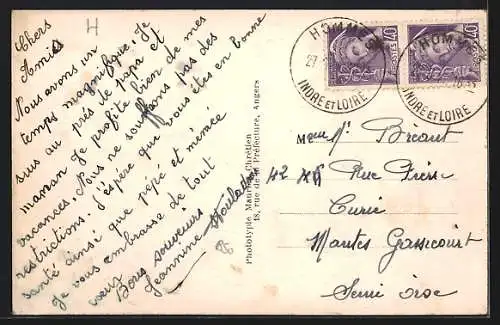 H
Chers
Amies
Nous avons un
temps magnifique. Je
suis au près de papa et
maman Je profite bien de mes
vacances. Nous ne souffrons pas des
restrictions. J'espère que vous êtes en bonne
santé ainsi que pépé et mémée
Je vous embrasse de tout
cœur
Bons souvenirs
Jeannine
Phototypie Maurice Chrétien
18, rue de la Préfecture, Angers
40
POSTES
40
HOMMES
27
INDRE ET LOIRE
HOMMES
INDRE ET LOIRE
Bréant
42 Rue Pierre
Curie
Mantes Gassicourt
Seine Oise